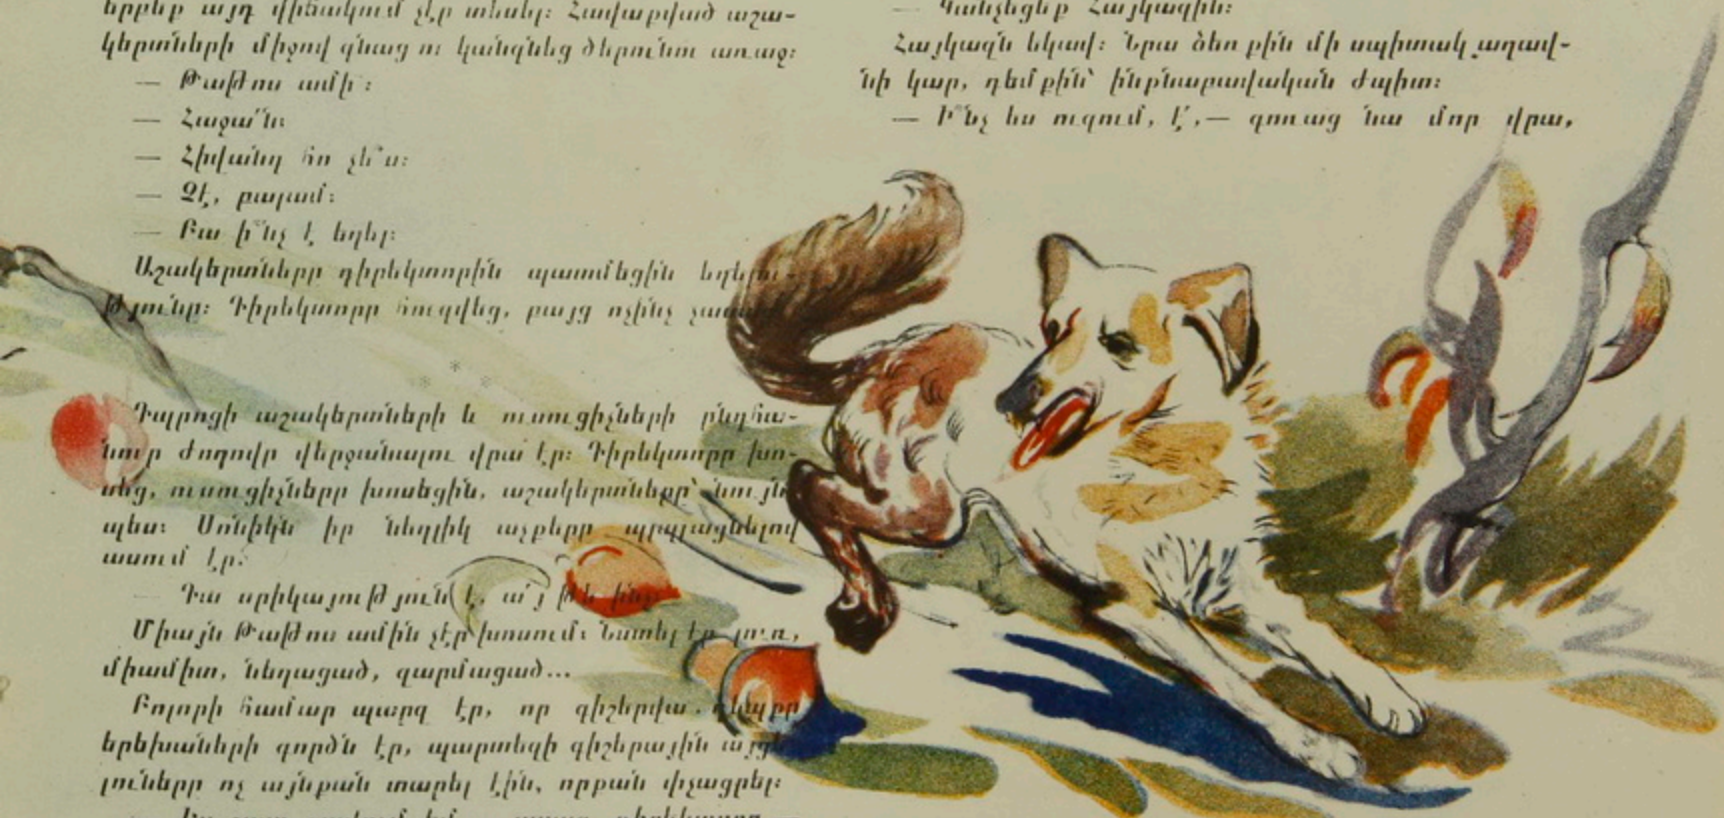 երբեք այդ վիճակում չէր տեսել։ Հավաքված աշա-
կերտների միջով գնաց ու կանգնեց ծերունու առաջ։
— Թաթոս ամի՛։
— Հաջա՞ն։
— Հիվանդ հո չե՞ս։
— Չէ, բալամ։
— Բա ի՞նչ է եղել։
Աշակերտները դիրեկտորին պատմեցին եղելու-
թյունը։ Դիրեկտորը հուզվեց, բայց ոչինչ չասաց
* * *
Դպրոցի աշակերտների և ուսուցիչների ընդհա-
նուր ժողովը վերջանալու վրա էր։ Դիրեկտորը խո-
սեց, ուսուցիչները խոսեցին, աշակերտները՝ նույն
պես։ Սոնիկն իր նեղլիկ աչքերը պըպլացնելով
ասում էր.
— Դա սրիկայություն է, ա՛յ թե ինչ
Միայն Թաթոս ամին չէր խոսում։ Նստել էր լուռ,
միամիտ, նեղացած, զարմացած...
Բոլորի համար պարզ էր, որ գիշերվա դեպքը
երեխաների գործն էր, պարտեզի գիշերային այցե
լուները ոչ այնքան տարել էին, որքան փչացրել։
— Կանչեցեք Հայկազին։
Հայկազն եկավ։ Նրա ձեռքին մի սպիտակ աղավ-
նի կար, դեմքին՝ ինքնաբավական ժպիտ։
— Ի՞նչ ես ուզում, է՛,— գոռաց նա մոր վրա,